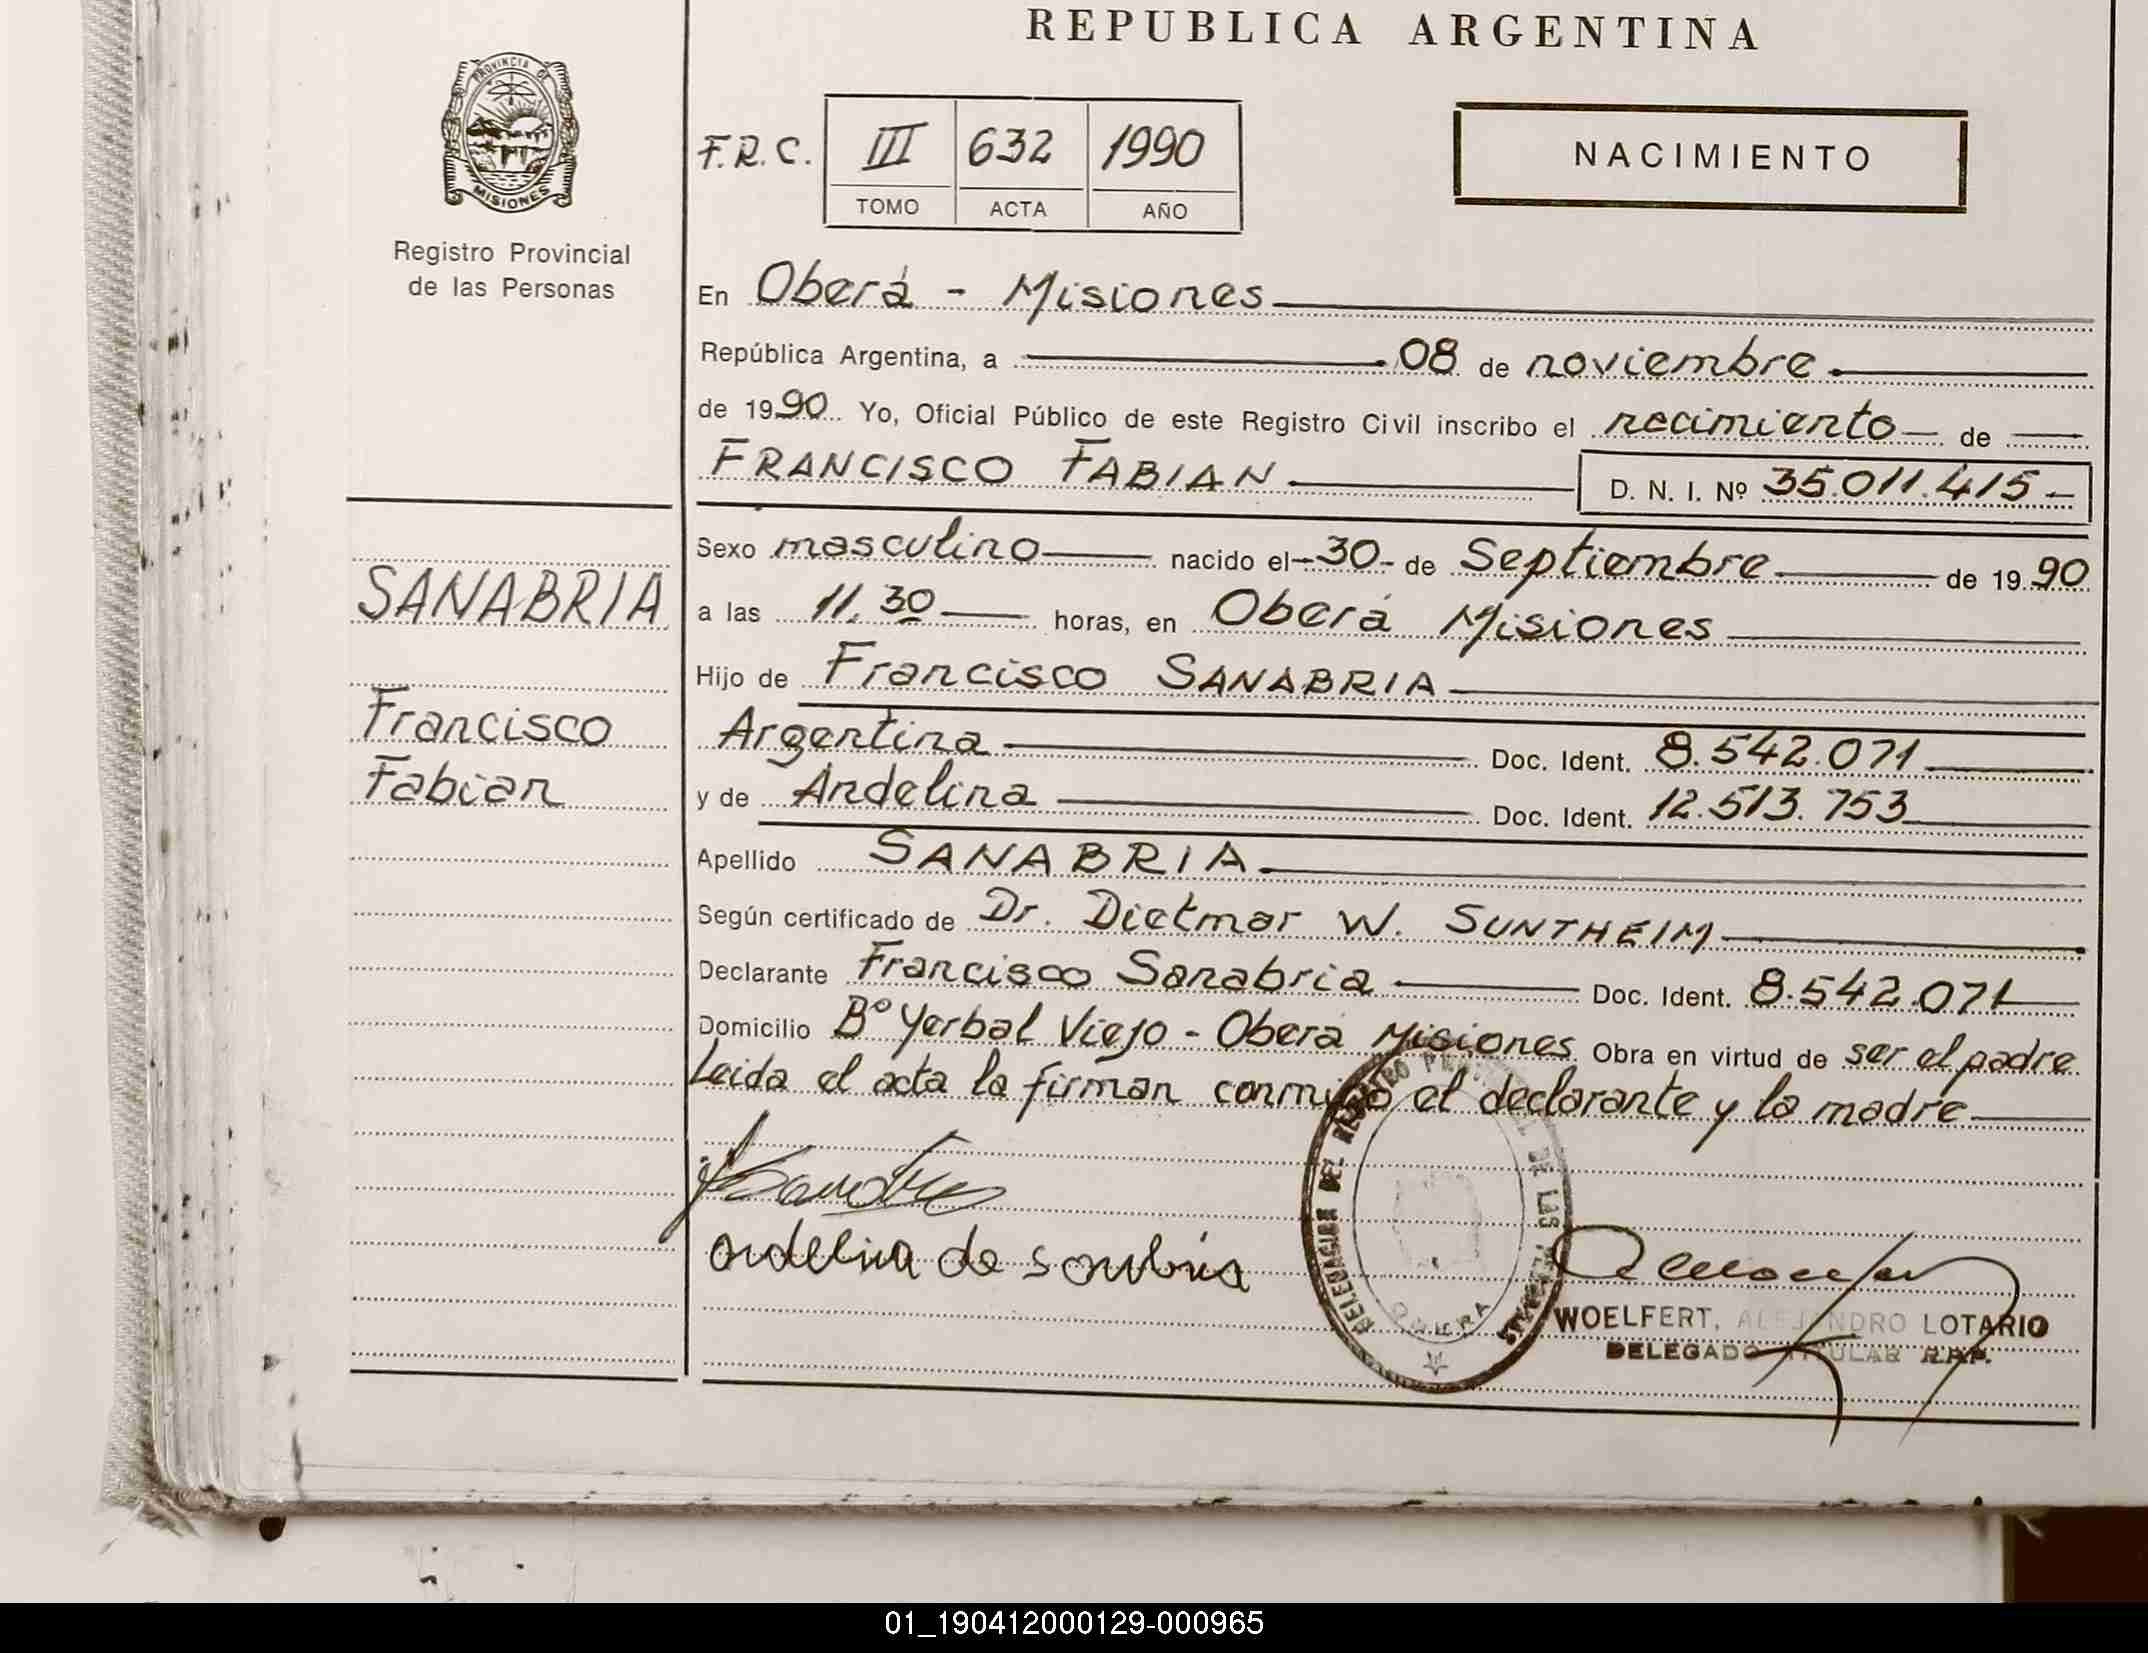 REPUBLICA ARGENTINA
PROVINCIA DE
MISIONES
Registro Provincial
de las Personas
F.R.C. III 632 1990
TOMO ACTA AÑO
NACIMIENTO
En Oberá - Misiones
República Argentina, a 08 de noviembre
de 1990 Yo, Oficial Público de este Registro Civil inscribo el nacimiento de
FRANCISCO FABIAN D. N. I. Nº 35.011.415
Sexo masculino nacido el 30 de Septiembre de 1990
a las 11.30 horas, en Oberá Misiones
Hijo de Francisco SANABRIA
Argentina Doc. Ident. 8.542.071
y de Andelina Doc. Ident. 12.513.753
Apellido SANABRIA
Según certificado de Dr. Dietmar W. SUNTHEIM
Declarante Francisco Sanabria Doc. Ident. 8.542.071
Domicilio Bº Yerbal Viejo - Oberá Misiones Obra en virtud de ser el padre
Leida el acta la firman conmigo el declarante y la madre
SANABRIA
Francisco
Fabian
DEL REGISTRO DE LAS PERSONAS
WOELFERT, ALEJANDRO LOTARIO
DELEGADO TITULAR R.P.P.
01_190412000129-000965